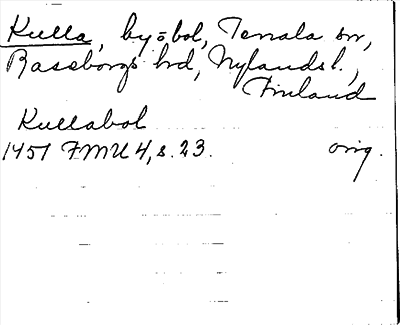 Kulla, by=bol, Tenala sn,
Raseborgs hd, Nylands l.,
Finland
Kullabol
1451 FMU 4, s. 23. orig.